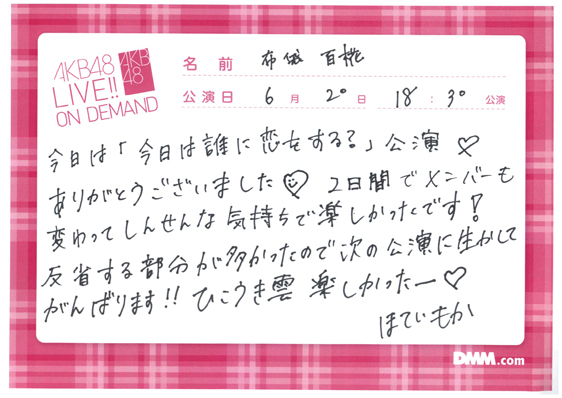 AKB48
LIVE!!
ON DEMAND
AKB
48
名前 布袋 百椛
公演日 6月 20日 18:30 公演
今日は「今日は誰に恋をする」公演♡
ありがとうございました♡ 2日間でメンバーも
変わってしんせんな気持ちで楽しかったです!
反省する部分が多かったので次の公演に生かして
がんばります!! ひこうき雲 楽しかったー♡
ほていもか
DMM.com